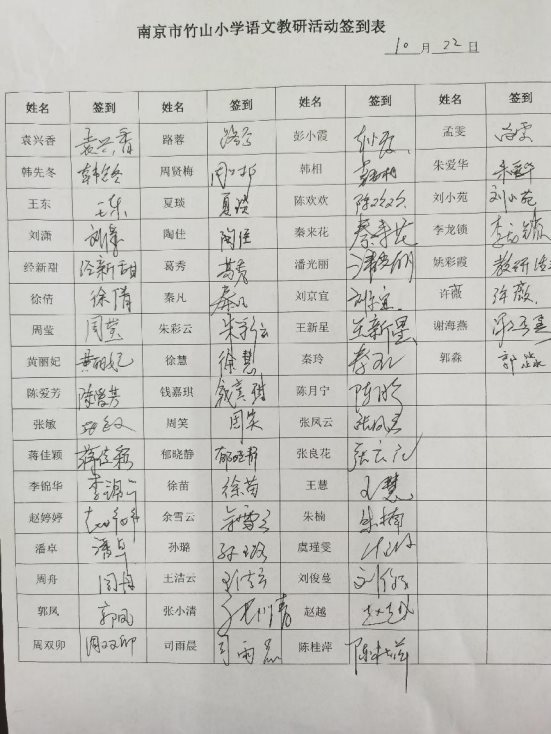 南京市竹山小学语文教研活动签到表
10月22日
姓名 签到 姓名 签到 姓名 签到 姓名 签到
袁兴香 袁兴香 路蓉 路蓉 彭小霞 孟雯 孟雯
韩先冬 韩先冬 周贤梅 韩相 韩相 朱爱华 朱爱华
王东 王东 夏琰 夏琰 陈欢欢 陈欢欢 刘小苑 刘小苑
刘潇 刘潇 陶佳 陶佳 秦来花 秦来花 李龙锁 李龙锁
经新甜 经新甜 葛秀 葛秀 潘光丽 潘光丽 姚彩霞 教研活动
徐倩 徐倩 秦凡 秦凡 刘京宜 刘京宜 许薇 许薇
周莹 周莹 朱彩云 朱彩云 王新星 王新星 谢海燕
黄丽妃 黄丽妃 徐慧 徐慧 秦玲 秦玲 郭淼 郭淼
陈爱芳 陈爱芳 钱嘉琪 钱嘉琪 陈月宁
张敏 张敏 周笑 周笑 张凤云 张凤云
蒋佳颖 蒋佳颖 郁晓静 郁晓静 张良花
李锦华 李锦华 徐苗 徐苗 王慧 王慧
赵婷婷 赵婷婷 余雪云 余雪云 朱楠 朱楠
潘卓 潘卓 孙璐 孙璐 虞瑾雯
周舟 周舟 王洁云 王洁云 刘俊蔓
郭凤 郭凤 张小清 赵越 赵越
周双卯 周双卯 司雨晨 司雨晨 陈桂萍 陈桂萍